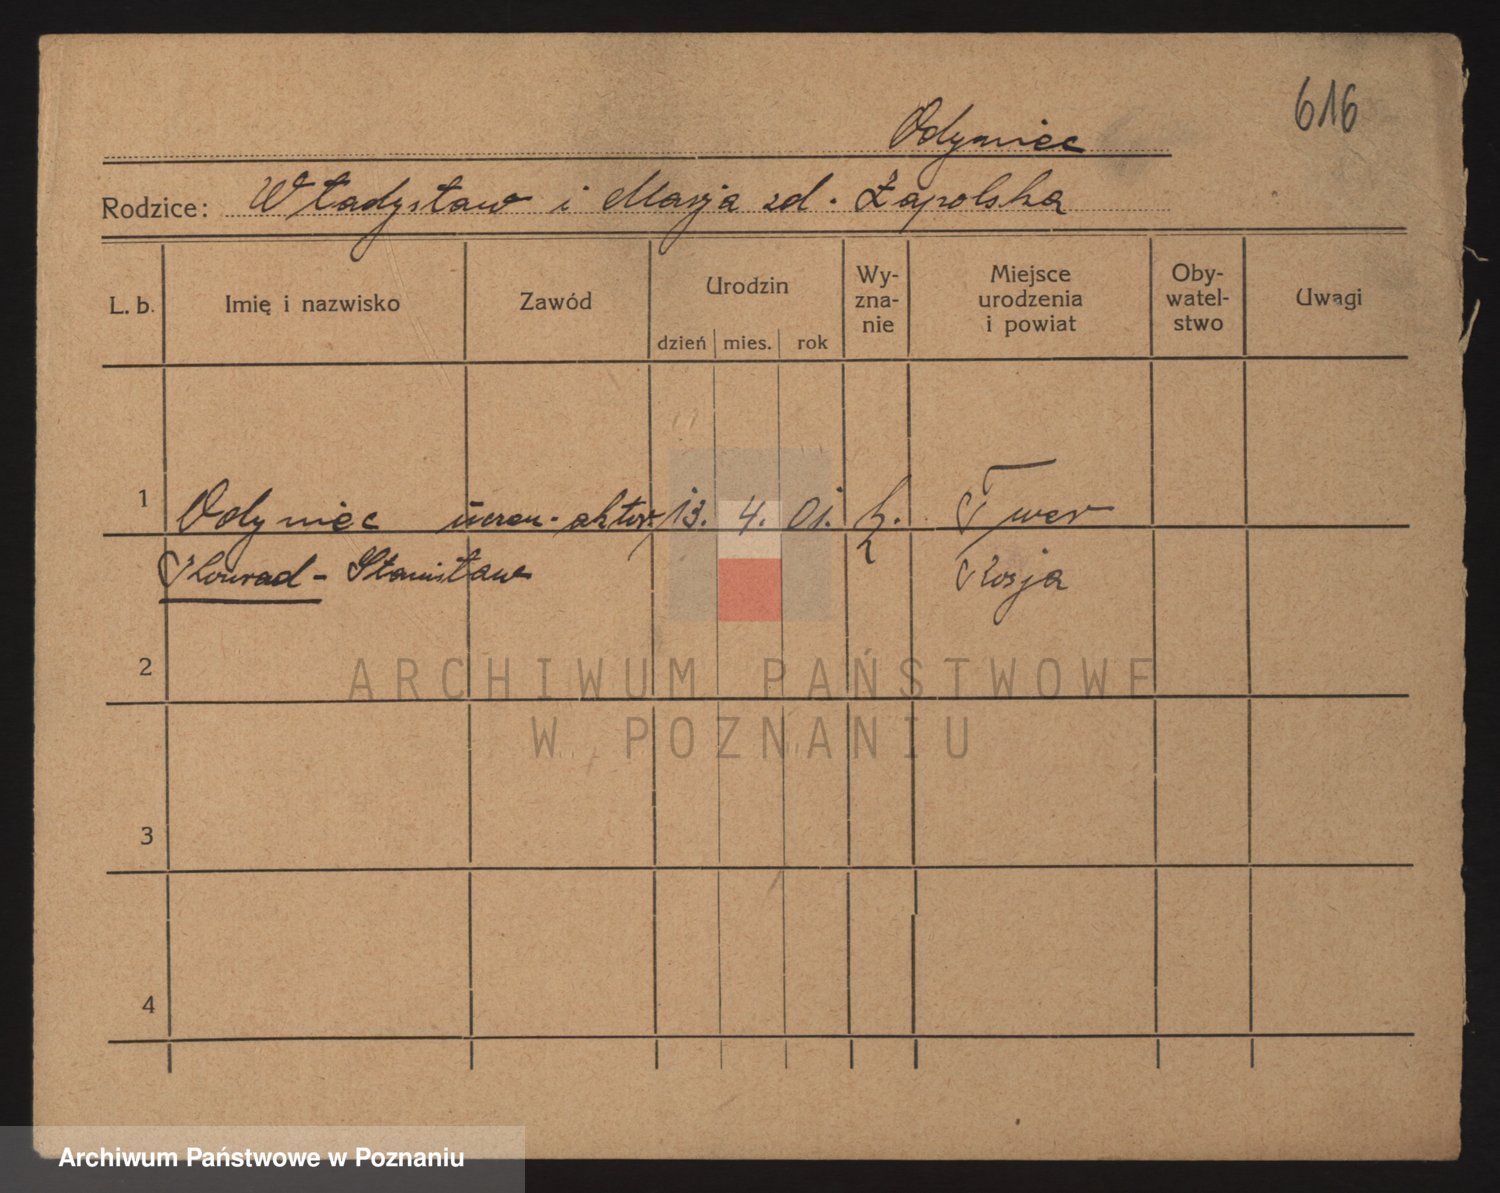 616
Odyniec
Rodzice: Władysław i Marja zd. Zapolska
L. b.
Imię i nazwisko
Zawód
Urodzin
dzień mies. rok
Wy-
zna-
nie
Miejsce
urodzenia
i powiat
Oby-
watel-
stwo
Uwagi
1 Odyniec uczen. aktor. 13. 4. 01. k. Twer
Konrad - Stanisław Rosja
2
3
4
ARCHIWUM PAŃSTWOWE
W POZNANIU
Archiwum Państwowe w Poznaniu